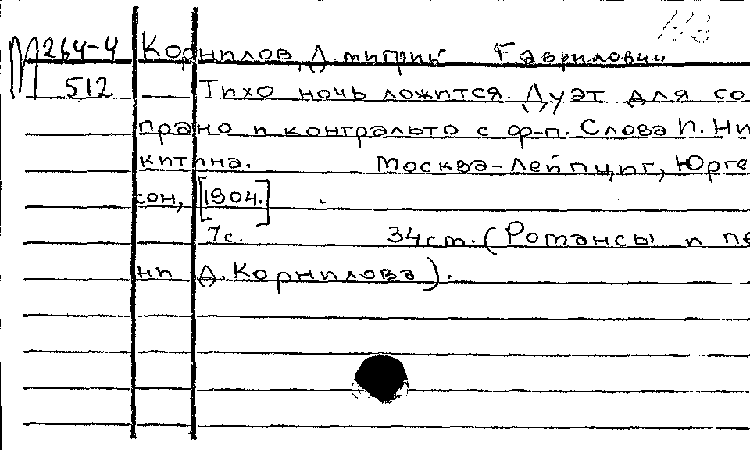 М 264-4 Корнилов, Дмитрий Гаврилович
512 Тихо ночь ложится. Дуэт для со
прано и контральто с ф-п. Слова И. Ни
китина. Москва-Лейпциг, Юрге
сон, [1904.]
7с. 34ст. (Романсы и пе
ни Д. Корнилова).